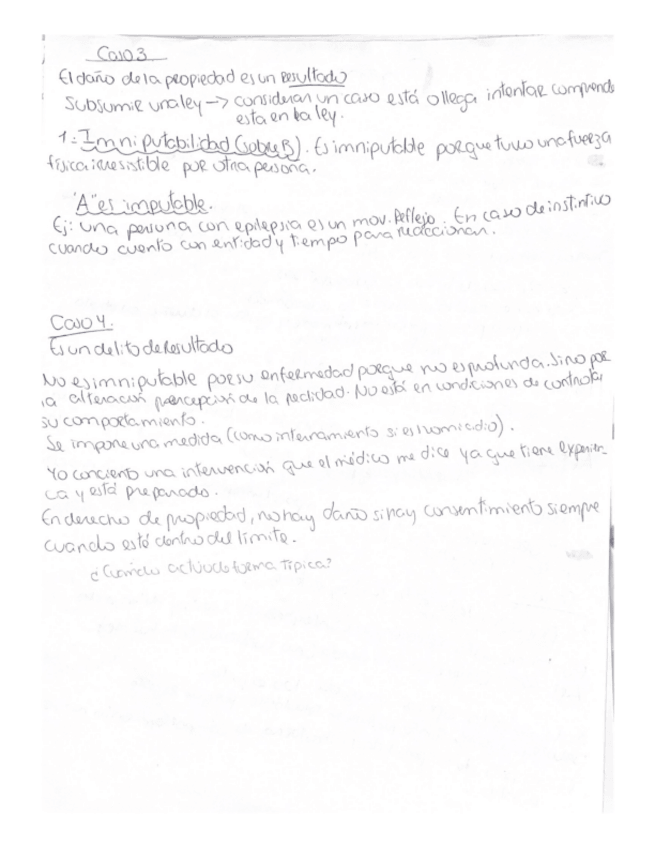 Caso 3
El daño de la propiedad es un resultado
Subsumir una ley -> consideran un caso está o llega intentar comprende
esta en la ley.
1: Imniputabilidad (sobre B). Es imniputable porque tuvo una fuerza
física irresistible por otra persona.
"A" es imputable.
Ej: una persona con epilepsia es un mov. Reflejo. En caso de instintivo
cuando cuento con entidad y tiempo para reaccionar.
Caso 4.
Es un delito de Resultado
No es imniputable por su enfermedad porque no es profunda. Sino por
la alteración percepción de la realidad. No está en condiciones de controlar
su comportamiento.
Se impone una medida (como internamiento si es homicidio).
Yo conciento una intervención que el médico me dice ya que tiene experien
cia y está preparado.
En derecho de propiedad, no hay daño si hay consentimiento siempre
cuando esté dentro del límite.
¿Cuándo actúo de forma típica?